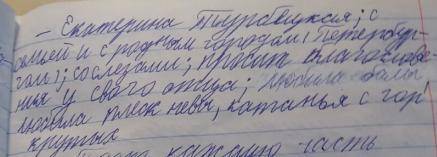 - Екатерина Трубецкая; с
семьей и с родным городом (Петербур-
гом); со слезами; просит благослове-
ния у своего отца; любила балы
любила плеск невы, катанья с гор
крутых
каждую часть